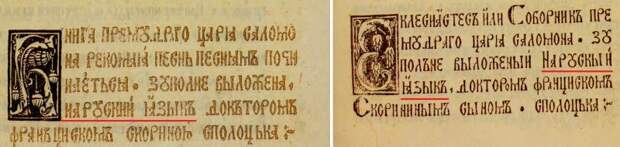 Книга премꙋдраго царꙗ саломо
на рекомаи песнь песнѧм почи
наеться. зꙋполне выложена,
на рꙋский ꙗзыкъ докътором
франьцискомъ скориною сполоцька :~
Еклесиастесъ или Соборникъ пре
мꙋдраго царꙗ саломона. Зꙋ
полъне выложеный на рꙋскый
ꙗзыкъ, докторомъ францискомъ
Скорининымъ сыномъ. сполоцька :~